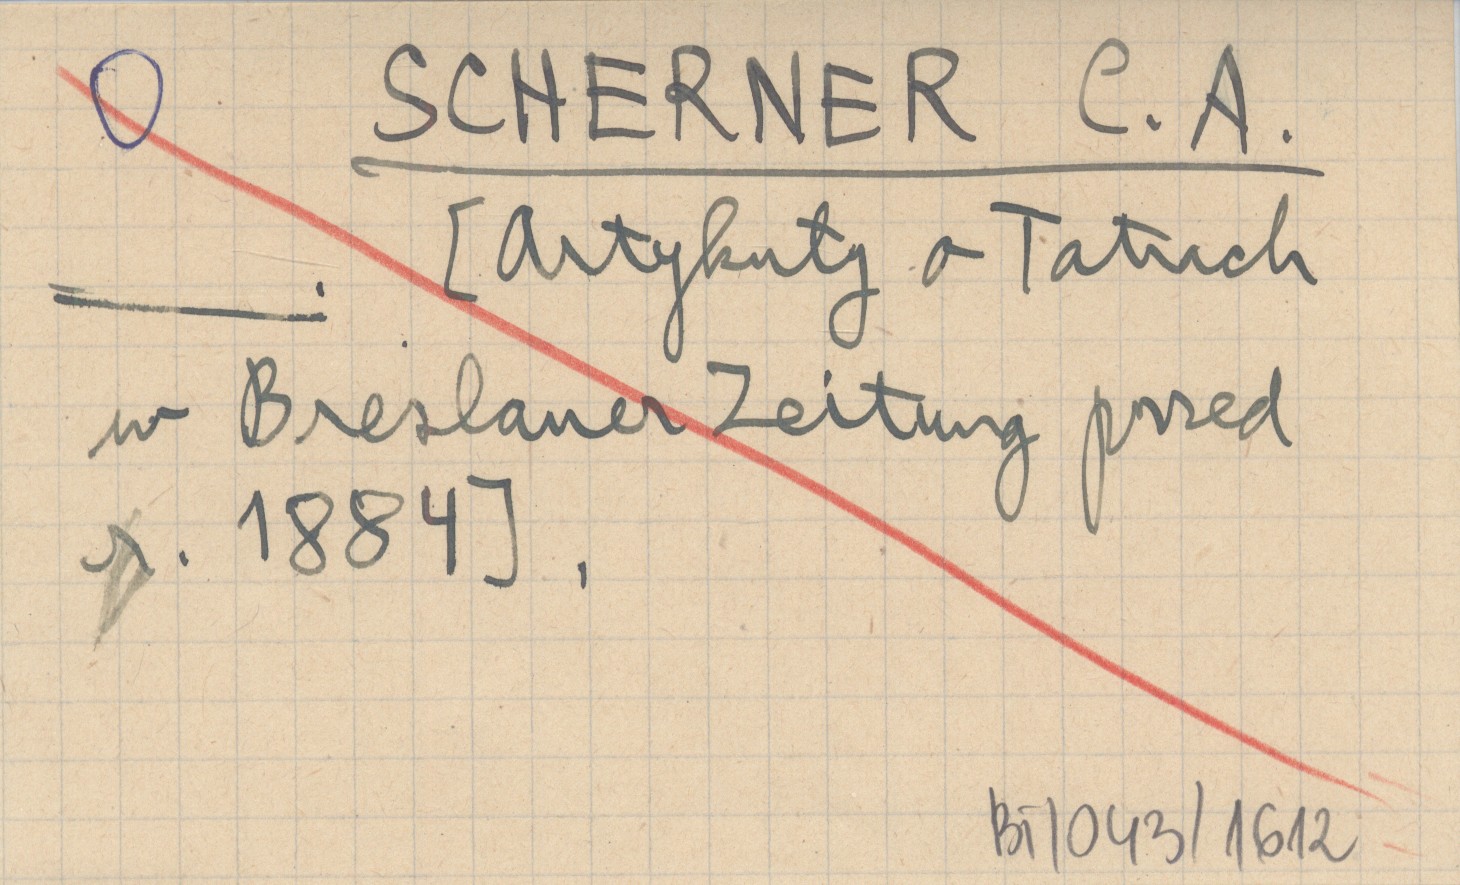 O SCHERNER C. A.
———: [Artykuły o Tatrach
w Breslauer Zeitung przed
r. 1884].
Bi/043/1612